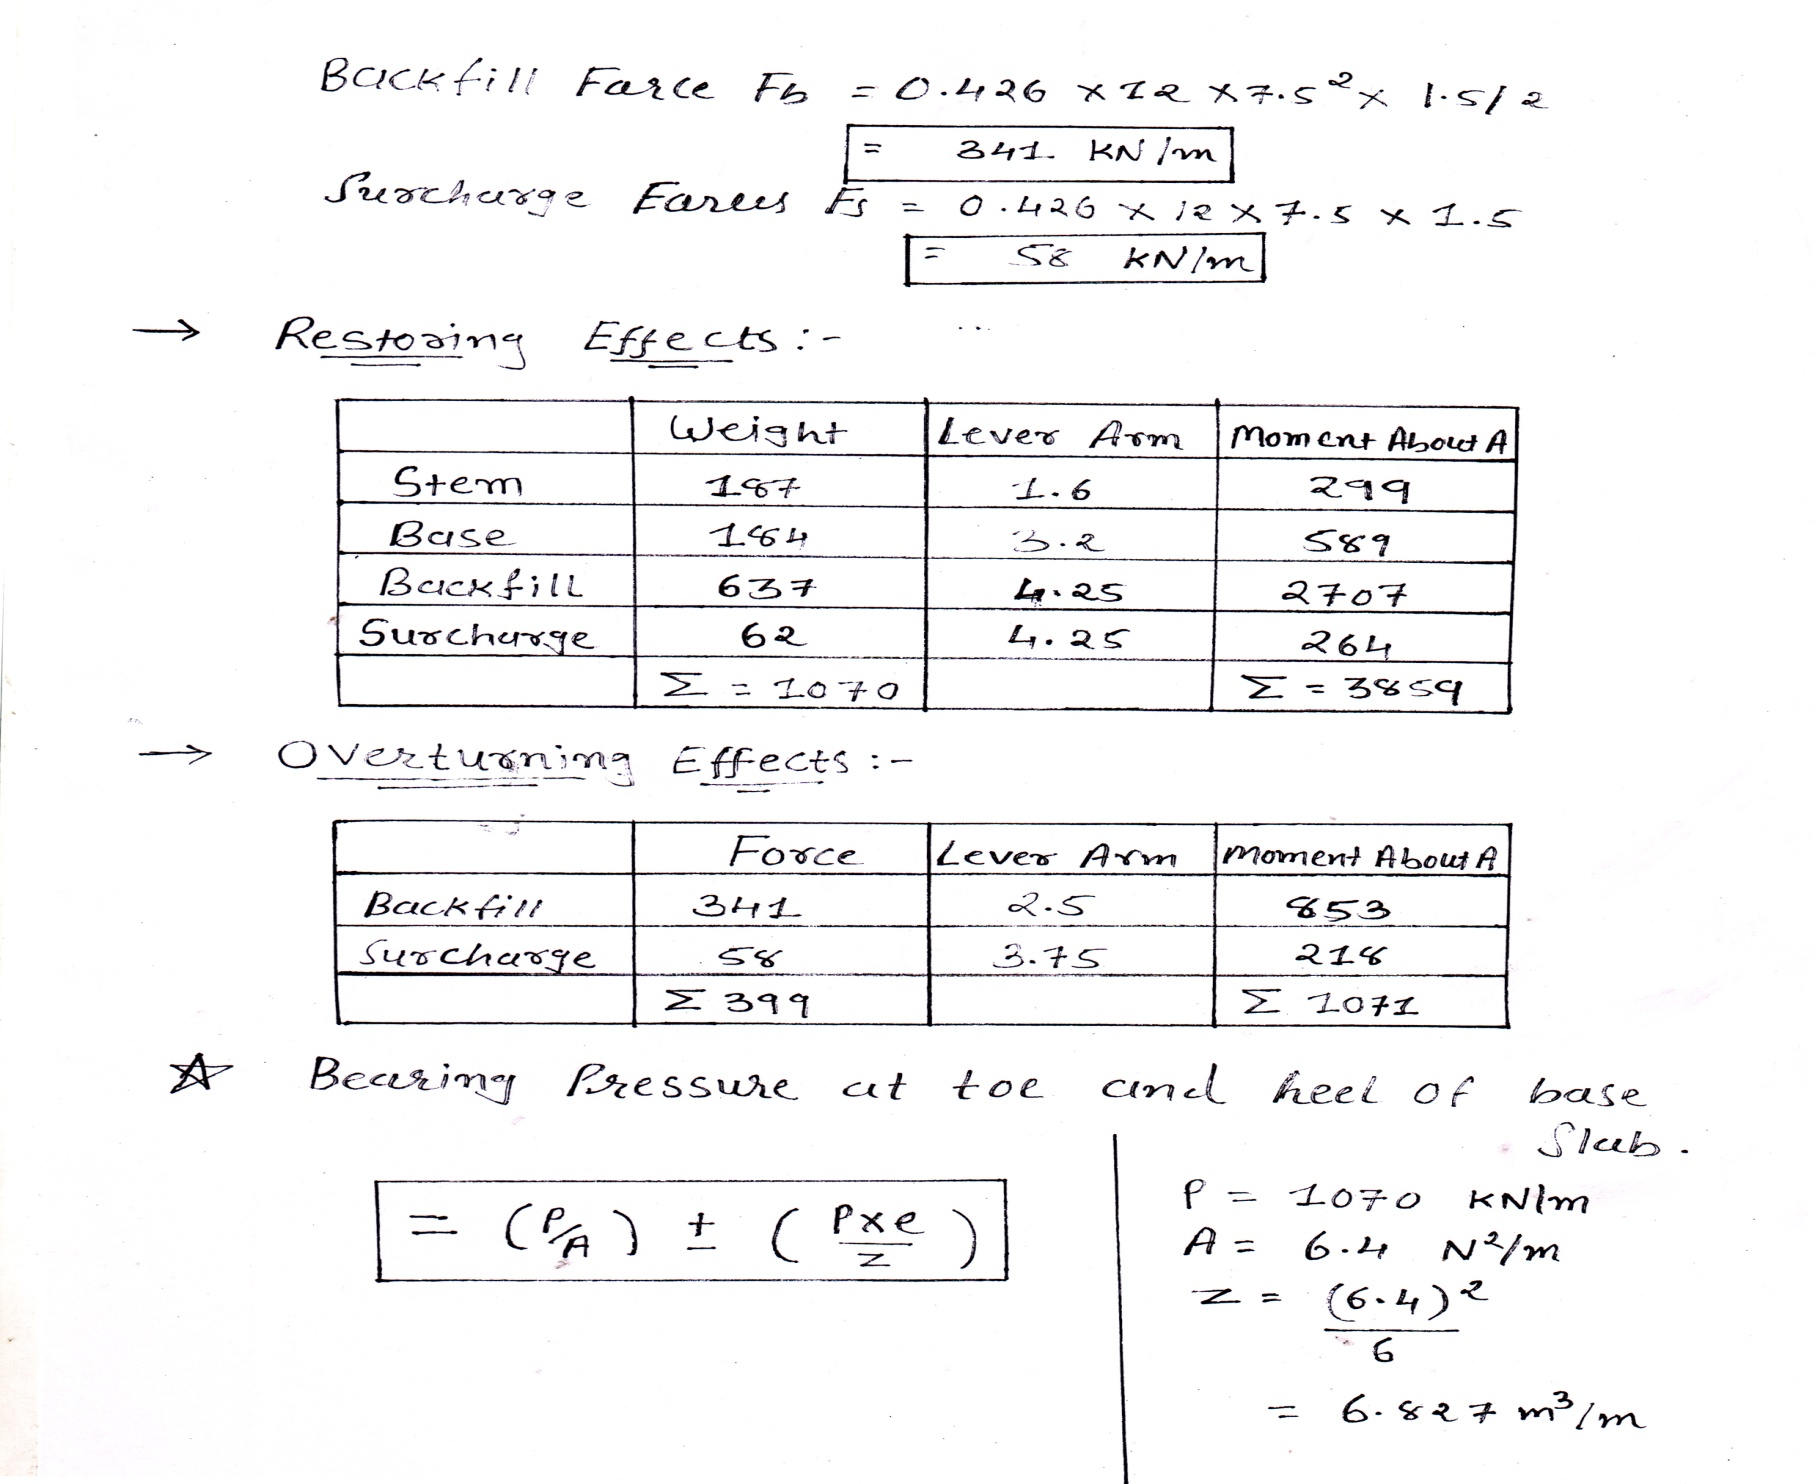 Backfill Farce Fb = 0.426 × 12 × 7.5² × 1.5/2
= 341 KN/m
Surcharge Farces Fs = 0.426 × 12 × 7.5 × 1.5
= 58 KN/m
→ Restoring Effects :-
Weight Lever Arm Moment About A
Stem 187 1.6 299
Base 184 3.2 589
Backfill 637 4.25 2707
Surcharge 62 4.25 264
Σ = 1070 Σ = 3859
→ Overturning Effects :-
Force Lever Arm Moment About A
Backfill 341 2.5 853
Surcharge 58 3.75 218
Σ 399 Σ 1071
☆ Bearing Pressure at toe and heel of base
Slab.
= (P/A) ± (P×e/Z)
P = 1070 KN/m
A = 6.4 N²/m
Z = (6.4)²
6
= 6.827 m³/m